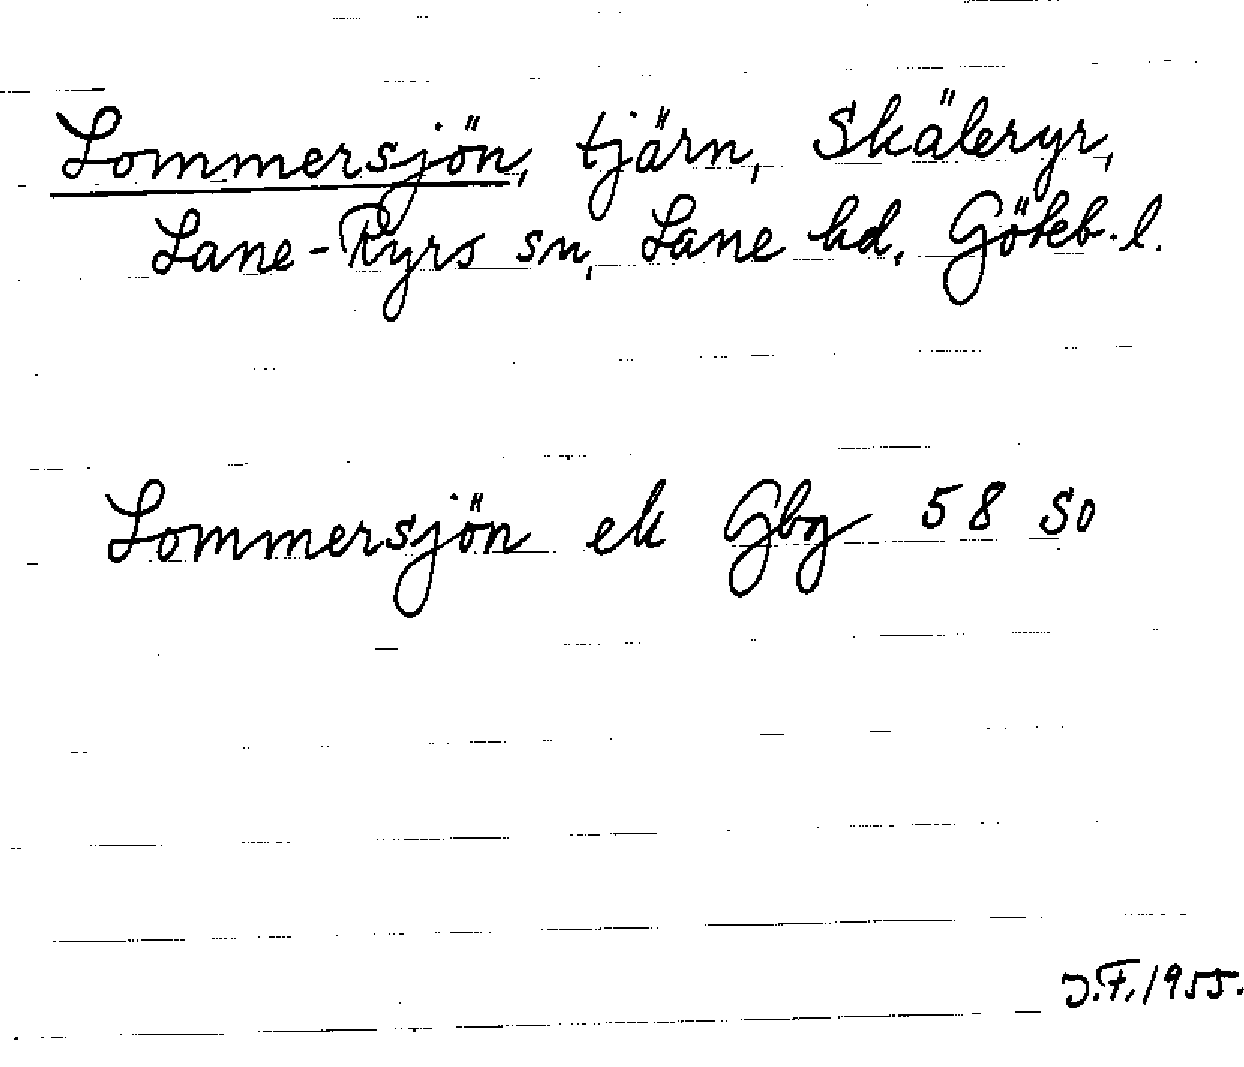 Lommersjön, tjärn, Skäleryr,
Lane-Ryrs sn, Lane hd. Göteb. l.
Lommersjön ek Gbg 58 So
J.F. 1955.